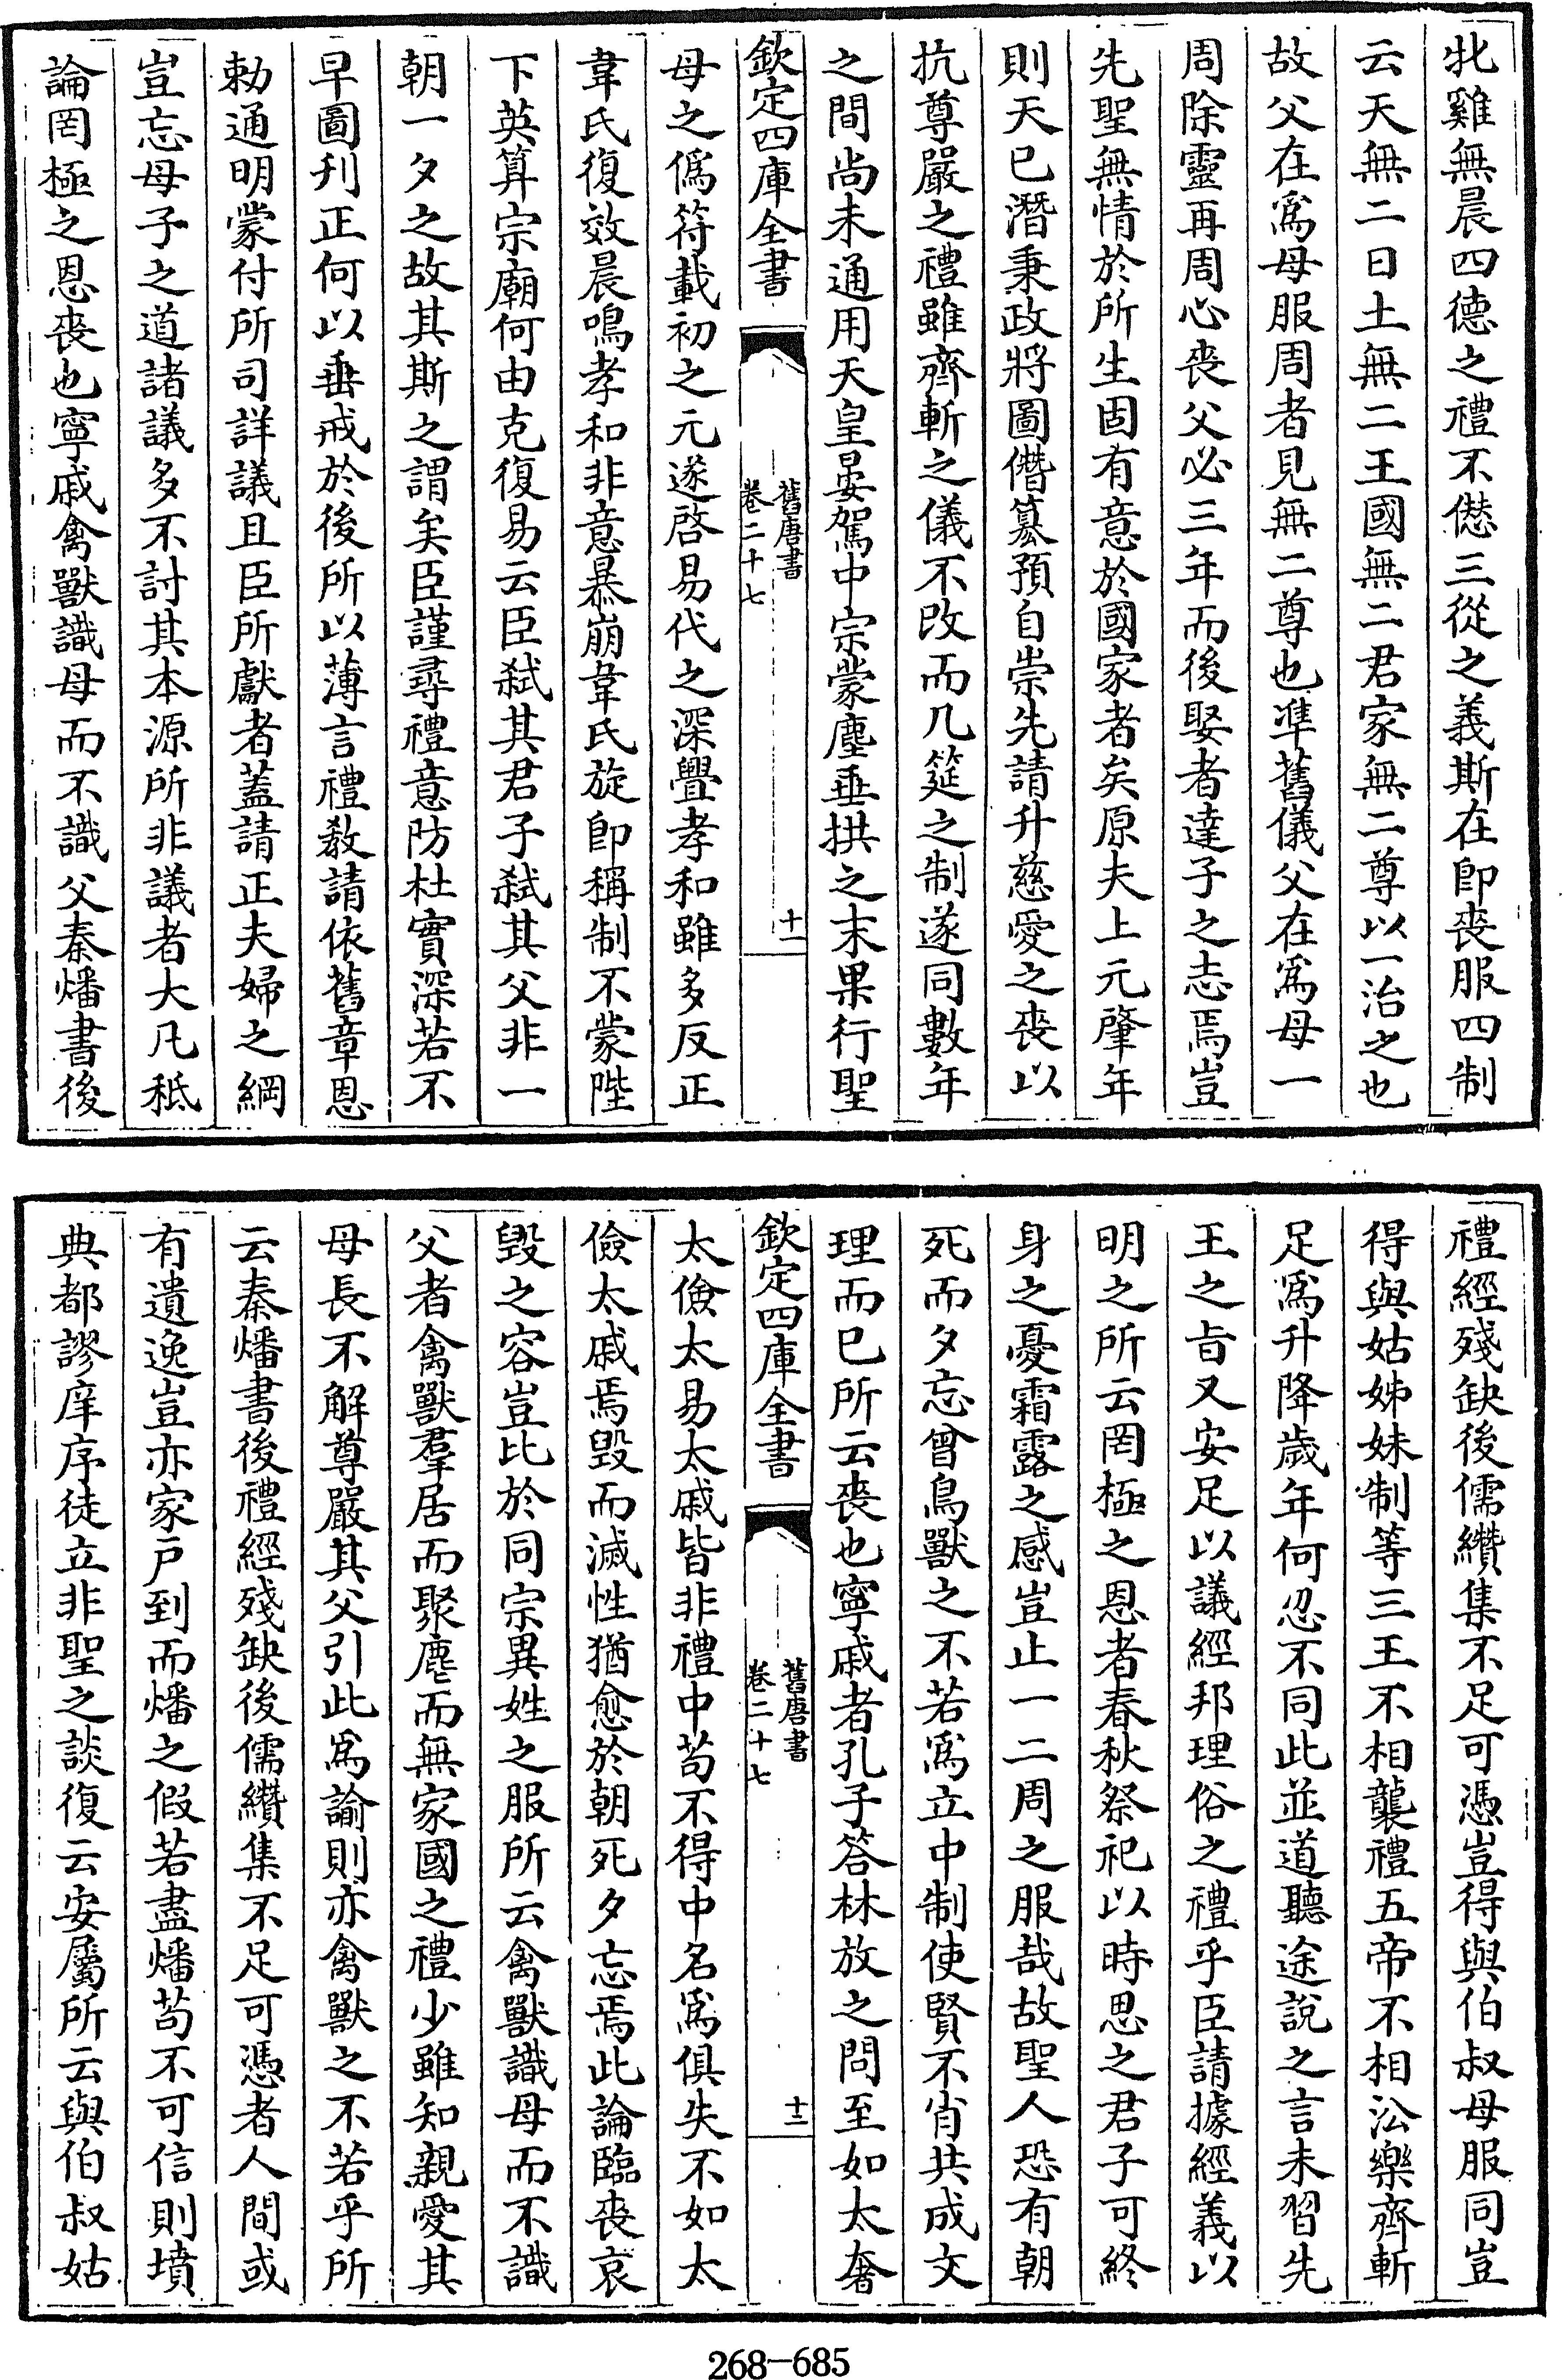 牝雞無晨四德之禮不愆三從之義斯在即喪服四制
云天無二日土無二王國無二君家無二尊以一治之也
故父在爲母服周者見無二尊也準舊儀父在爲母一
周除靈再周心喪父必三年而後娶者達子之志焉豈
先聖無情於所生固有意於國家者矣原夫上元肇年
則天已潛秉政將圖僭篡預自崇先請升慈愛之喪以
抗尊嚴之禮雖齊斬之儀不改而几筵之制遂同數年
之間尚未通用天皇晏駕中宗蒙塵垂拱之末果行聖
欽定四庫全書
舊唐書
卷二十七
十一
母之僞符載初之元遂啓易代之深釁孝和雖多反正
韋氏復效晨鳴孝和非意暴崩韋氏旋即稱制不蒙陛
下英算宗廟何由克復易云臣弑其君子弑其父非一
朝一夕之故其斯之謂矣臣謹尋禮意防杜實深若不
早圖刋正何以垂戒於後所以薄言禮教請依舊章恩
勅通明蒙付所司詳議且臣所獻者蓋請正夫婦之綱
豈忘母子之道諸議多不討其本源所非議者大凡秪
論罔極之恩喪也寧戚禽獸識母而不識父秦燔書後
禮經殘缺後儒纘集不足可憑豈得與伯叔母服同豈
得與姑姊妹制等三王不相襲禮五帝不相沿樂齊斬
足爲升降歲年何忍不同此並道聽途說之言未習先
王之旨又安足以議經邦理俗之禮乎臣請據經義以
明之所云罔極之恩者春秋祭祀以時思之君子可終
身之憂霜露之感豈止一二周之服哉故聖人恐有朝
死而夕忘曾鳥獸之不若爲立中制使賢不肖共成文
理而已所云喪也寧戚者孔子答林放之問至如太奢
欽定四庫全書
舊唐書
卷二十七
十二
太儉太易太戚皆非禮中苟不得中名爲俱失不如太
儉太戚焉毀而滅性猶愈於朝死夕忘焉此論臨喪哀
毀之容豈比於同宗異姓之服所云禽獸識母而不識
父者禽獸羣居而聚麀而無家國之禮少雖知親愛其
母長不解尊嚴其父引此爲諭則亦禽獸之不若乎所
云秦燔書後禮經殘缺後儒纘集不足可憑者人間或
有遺逸豈亦家戶到而燔之假若盡燔苟不可信則墳
典都謬庠序徒立非聖之談復云安屬所云與伯叔姑
268-685